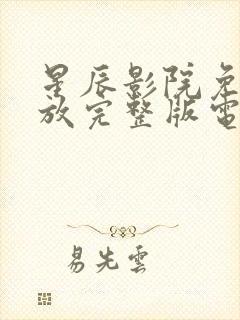 星辰影院免
放完整版電
易先雲